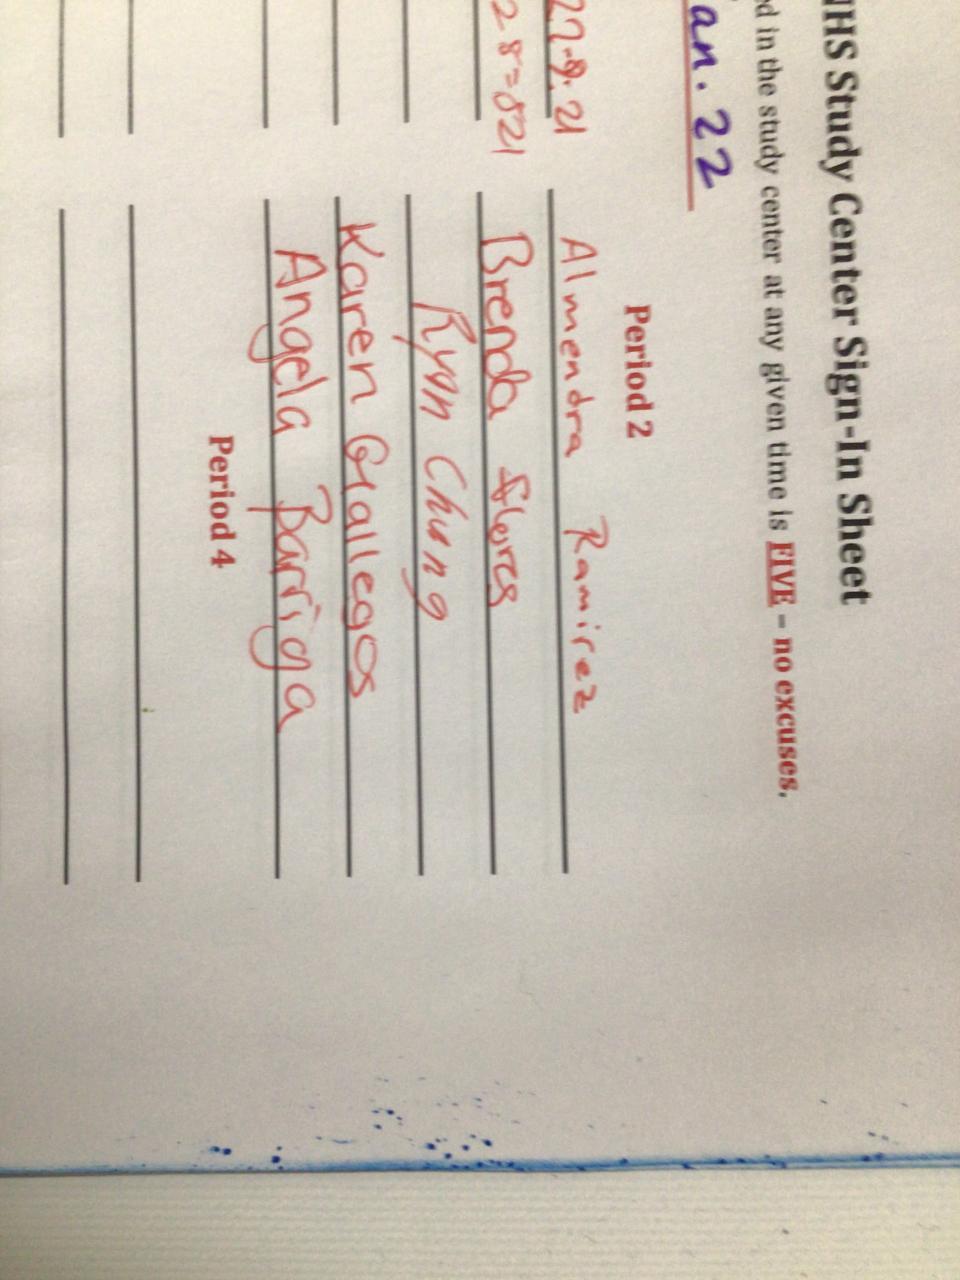 NHS Study Center Sign-In Sheet
ed in the study center at any given time is FIVE – no excuses.
an. 22
Period 2
27-9.21 Almendra Ramirez
28=821 Brenda flores
Ryan Chung
Karen Gallegos
Angela Barriga
Period 4